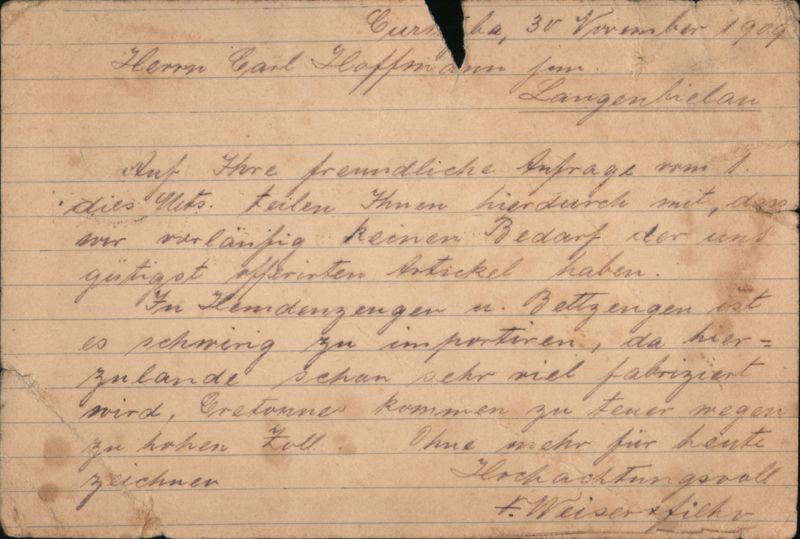 Curityba, 30 November 1909
Herrn Carl Hoffmann jun.
Langenbielau
Auf Ihre freundliche Anfrage vom 1.
dies Mts. teilen Ihnen hierdurch mit, dass
wir vorläufig keinen Bedarf der uns
gütigst offerirten Artickel haben.
In Hemdenzeugen u. Bettzeugen ist
es schwirig zu importiren, da hier=
zulande schon sehr viel fabriziert
wird, Cretonnes kommen zu teuer wegen
zu hohen Zoll. Ohne mehr für heute
zeichnen Hochachtungsvoll
F. Weiser